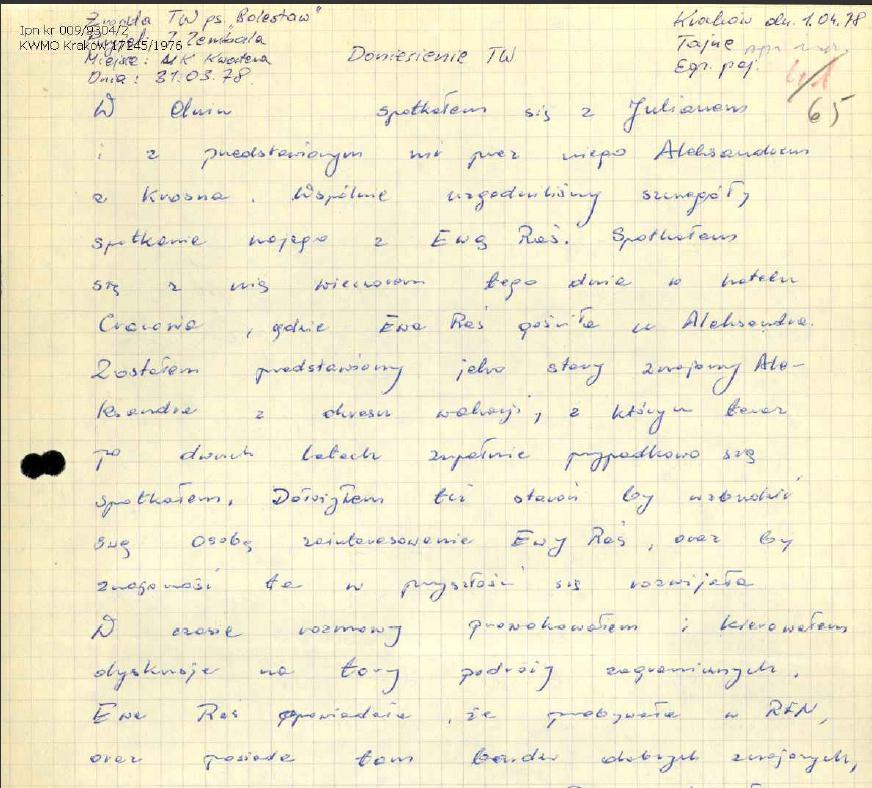 Źródło TW ps. "Bolesław"
Ipn kr 009/9304/2
Przyjął: Z. Zembala
KWMO Kraków 17245/1976
Miejsce: MK Kwatera
Dnia: 31.03.78.
Kraków dn. 1.04.78
Tajne
Egz. poj.
65
Doniesienie TW
W dniu spotkałem się z Julianem
i z przedstawionym mi przez niego Aleksandrem
z Krosna. Wspólnie uzgodniliśmy szczegóły
spotkania mojego z Ewą Raś. Spotkałem
się z nią wieczorem tego dnia w hotelu
Cracovia, gdzie Ewa Raś gościła u Aleksandra.
Zostałem przedstawiony jako stary znajomy Ale-
ksandra z okresu wakacji, z którym teraz
po dwóch latach zupełnie przypadkowo się
spotkałem. Dołożyłem też starań by wzbudzić
swą osobą zainteresowanie Ewy Raś, oraz by
znajomość ta w przyszłości się rozwijała
W czasie rozmowy prowokowałem i kierowałem
dyskusje na tory podróży zagranicznych.
Ewa Raś opowiadała, że przebywała w RFN,
oraz posiada tam bardzo dobrych znajomych,